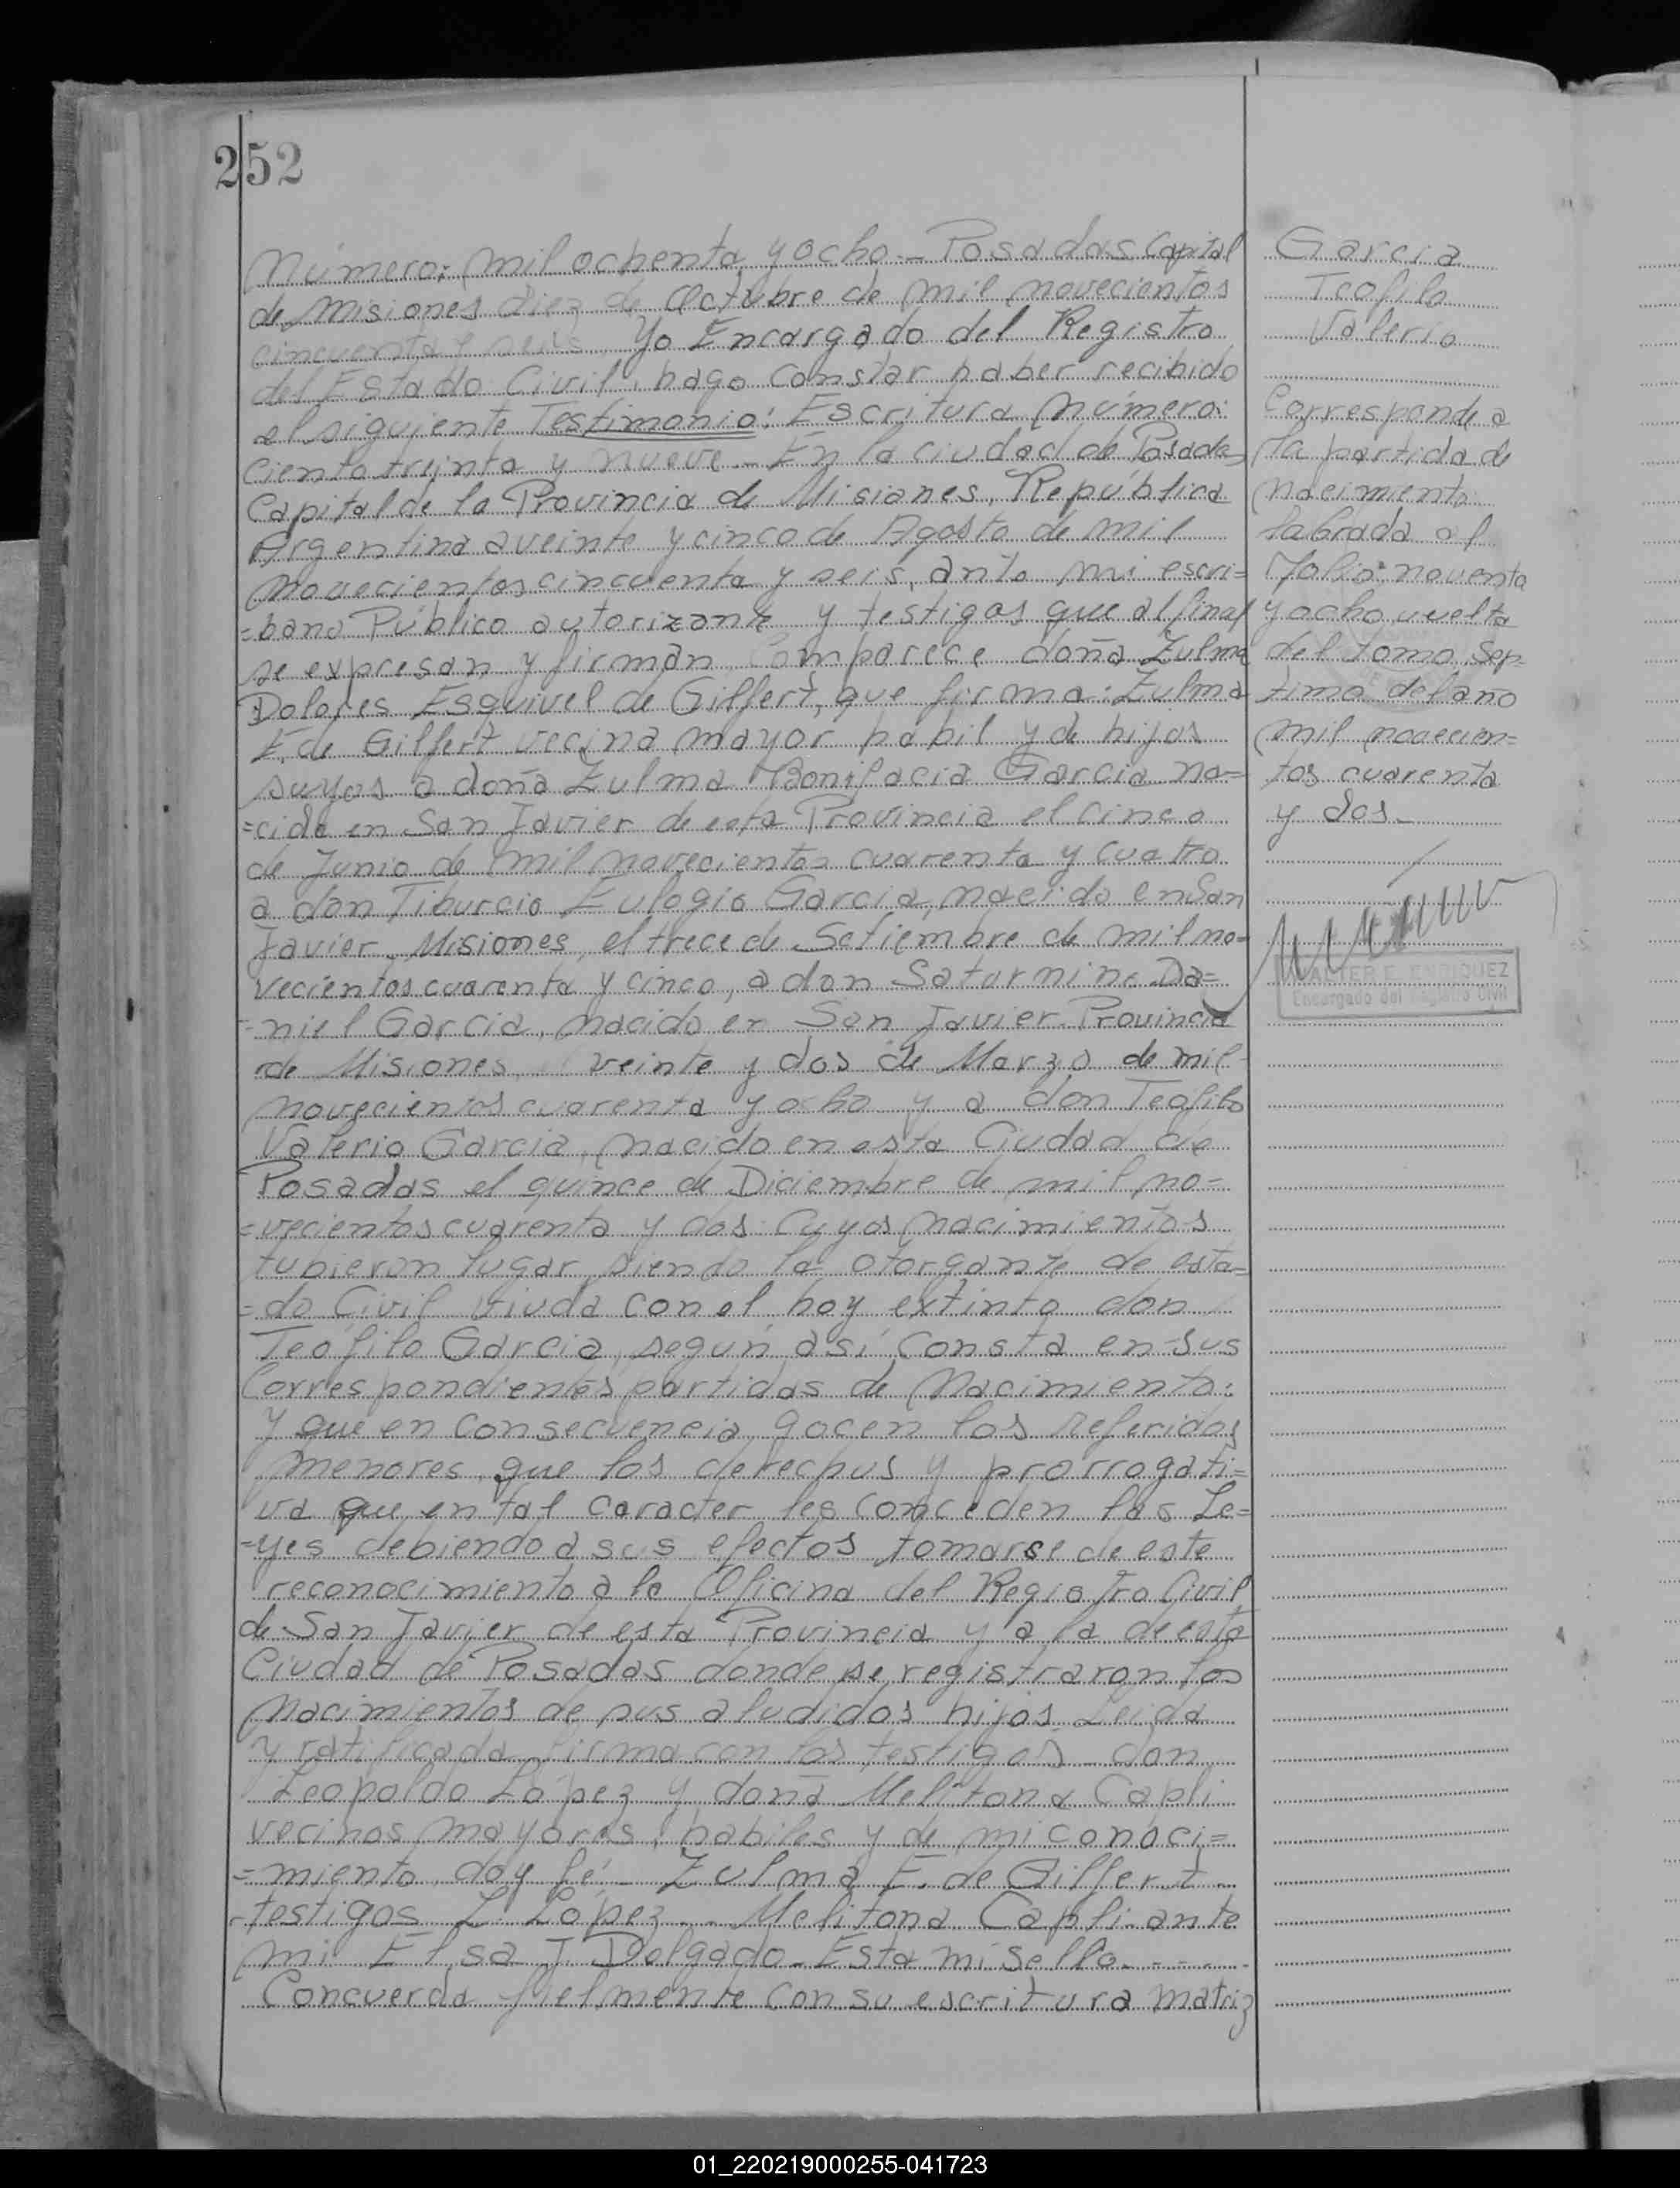 252
Número: mil ochenta y ocho.- Posadas Capital
de Misiones diez de Octubre de mil novecientos
cincuenta y seis. Yo Encargado del Registro
del Estado Civil, hago constar haber recibido
el siguiente Testimonio: Escritura Número:
Ciento treinta y nueve.- En la ciudad de Posadas
Capital de la Provincia de Misiones, República
Argentina a veinte y cinco de Agosto de mil
novecientos cincuenta y seis, ante mi escri=
=bano Público autorizante y testigos que al final
se expresan y firman, Comparece doña Zulma
Dolores Esquivel de Gilfert, que firma: Zulma
E. de Gilfert vecina mayor habil y de hijos
suyos a doña Zulma Bonifacia Garcia na=
=cida en San Javier de esta Provincia el cinco
de Junio de mil novecientos cuarenta y cuatro
a don Tiburcio Eulogio Garcia, nacido en San
Javier, Misiones, el trece de Setiembre de mil no=
vecientos cuarenta y cinco, a don Saturnino Da=
=niel Garcia, nacido en San Javier Provincia
de Misiones, veinte y dos de Marzo de mil
novecientos cuarenta y ocho y a don Teófilo
Valerio Garcia, nacido en esta Ciudad de
Posadas el quince de Diciembre de mil no=
=vecientos cuarenta y dos. Cuyos nacimientos
tubieron lugar siendo la otorgante de esta=
=do Civil viuda con el hoy extinto don
Teófilo Garcia, según así consta en sus
Correspondientes partidas de Nacimiento:
Y que en consecuencia gocen los referidos
menores, que los derechos y prorrogati=
va que en tal caracter les conceden las Le=
=yes debiendo a sus efectos tomarse de este
reconocimiento a la Oficina del Registro Civil
de San Javier de esta Provincia y a la de esta
Ciudad de Posadas donde se registraron los
nacimientos de sus aludidos hijos. Leida
y ratificada firma con los testigos don
Leopoldo López y doña Melitona Capli
vecinos mayores, habiles y de mi conoci=
=miento, doy fé.- Zulma E. de Gilfert.-
-testigos L. López.- Melitona Capli. ante
mi Elsa J. Delgado. Esta mi sello.- - - -
Concuerda fielmente con su escritura matriz
Garcia
Teofilo
Valerio
Corresponde a
la partida de
nacimiento
labrada al
Folio: noventa
y ocho vuelta
del tomo Sep-
timo del año
mil novecien=
tos cuarenta
y dos.-
WALTER E. ENRIQUEZ
Encargado del Registro Civil
01_220219000255-041723